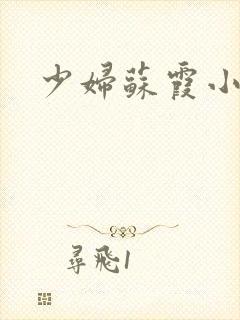 少婦蘇霞小
尋飛1